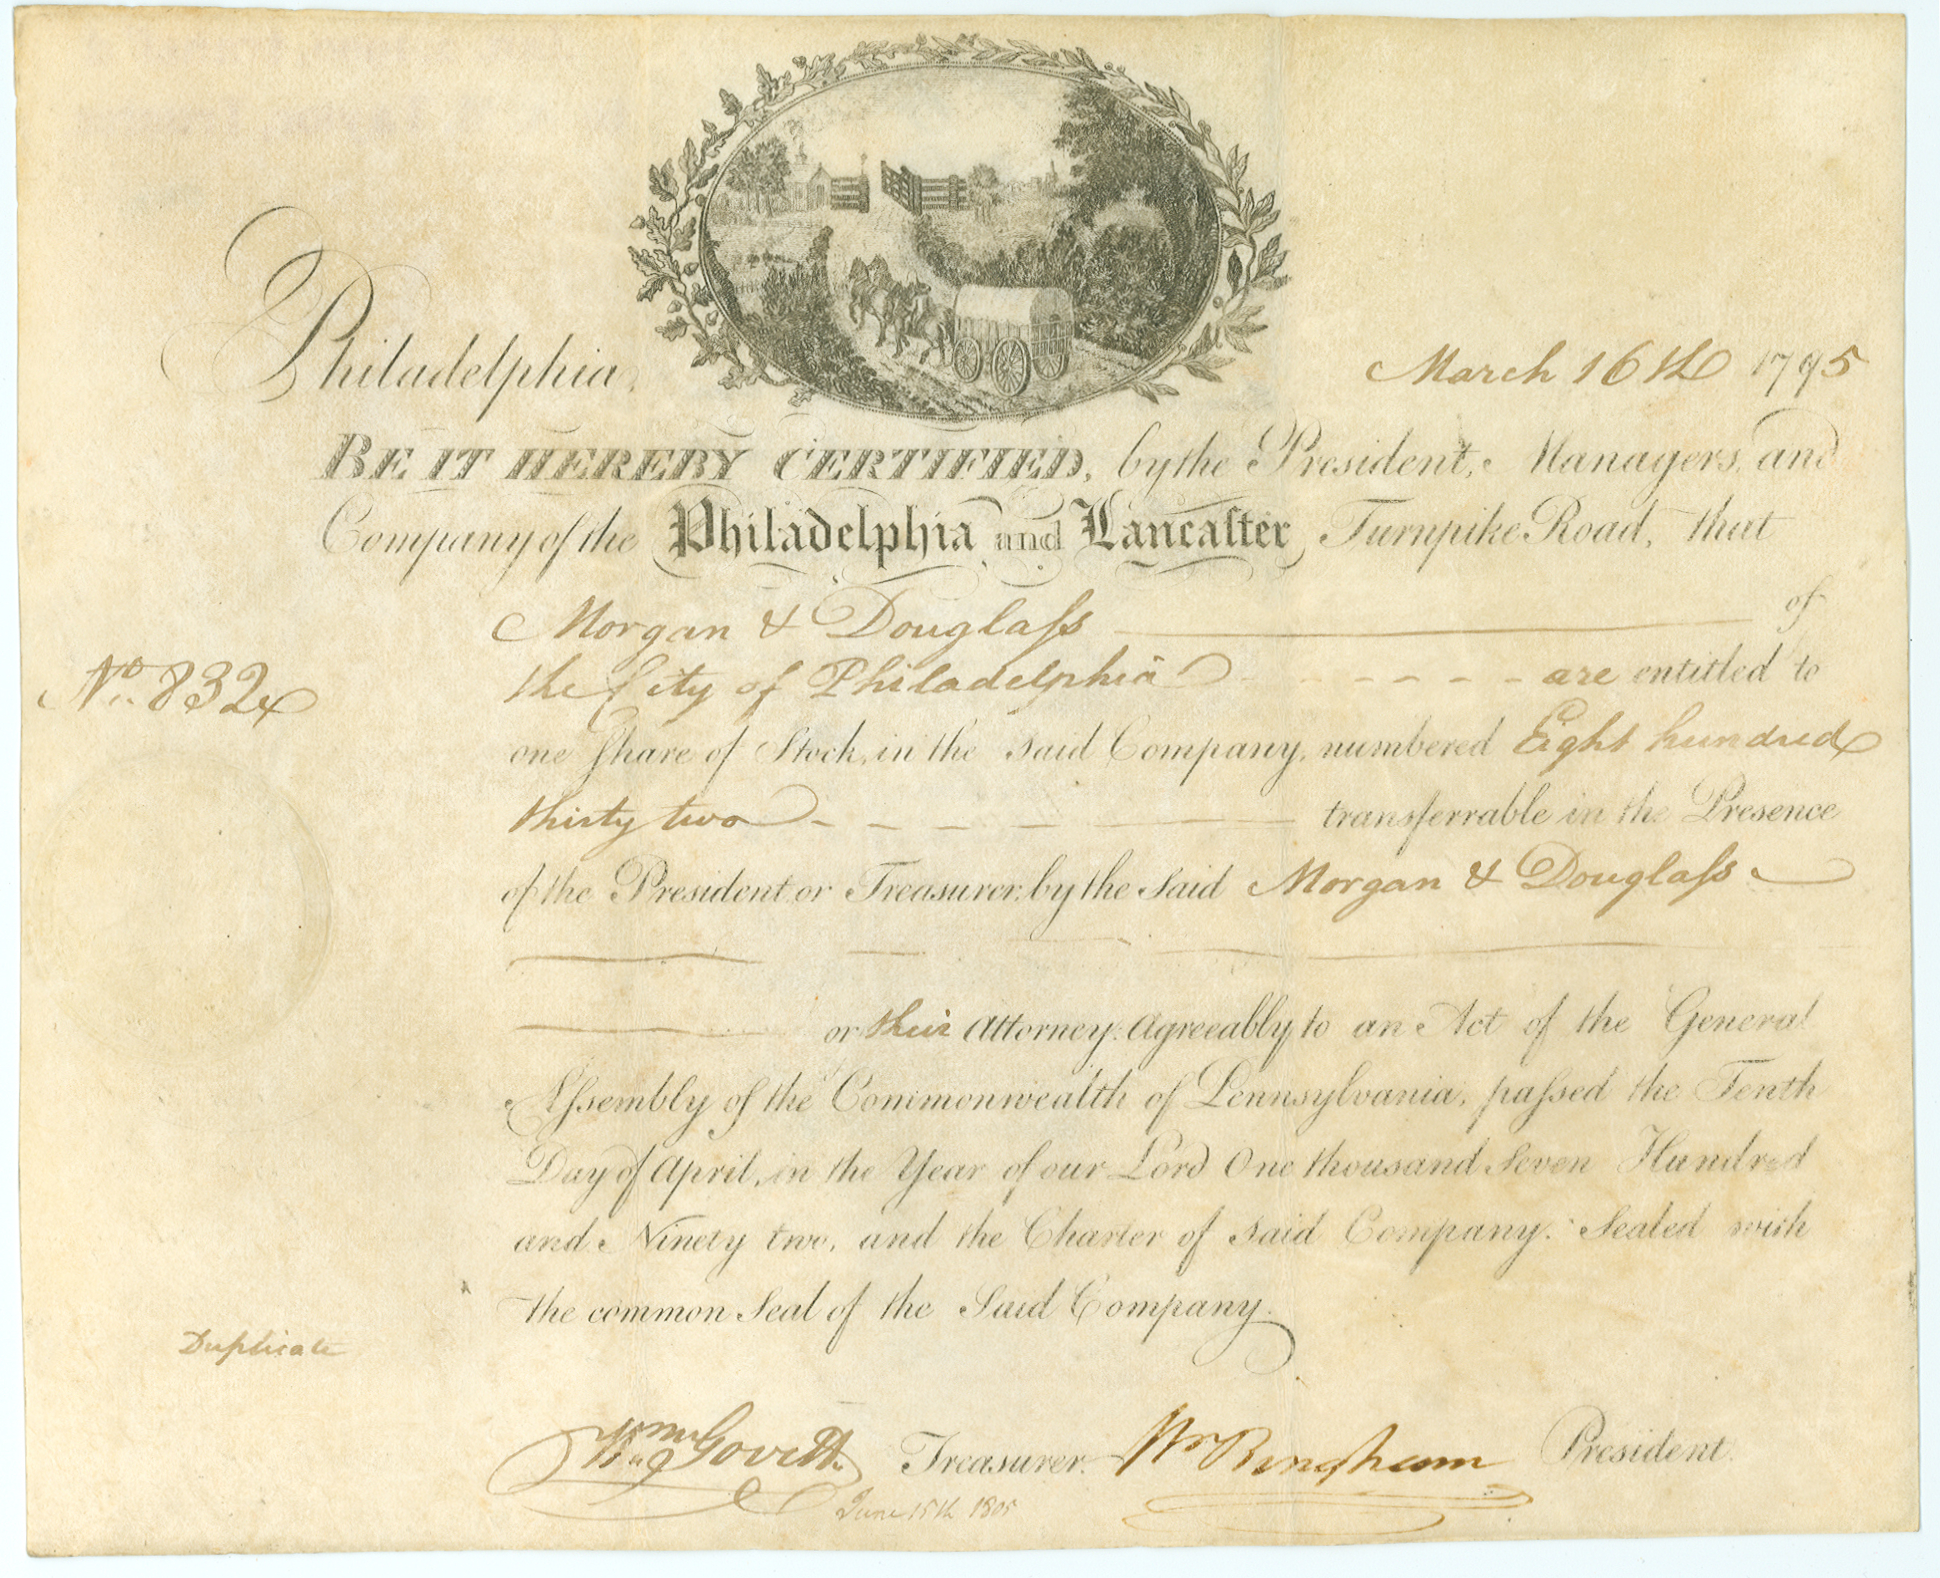 Philadelphia, March 16th 1795
BE IT HEREBY CERTIFIED, by the President, Managers, and
Company of the Philadelphia and Lancaſter Turnpike Road, that
Morgan & Douglaſs of
the City of Philadelphia are entitled to
No. 832
one Share of Stock, in the said Company, numbered Eight hundred
thirty two transferrable in the Presence
of the President or Treasurer, by the Said Morgan & Douglaſs
or their Attorney. Agreeably to an Act of the General
Aſsembly of the Commonwealth of Pennsylvania, paſsed the Tenth
Day of April, in the Year of our Lord One thousand Seven Hundred
and Ninety two, and the Charter of said Company. Sealed with
the common Seal of the Said Company.
Duplicate
Wm Govett Treasurer. Wm Bingham President.
June 15th 1805